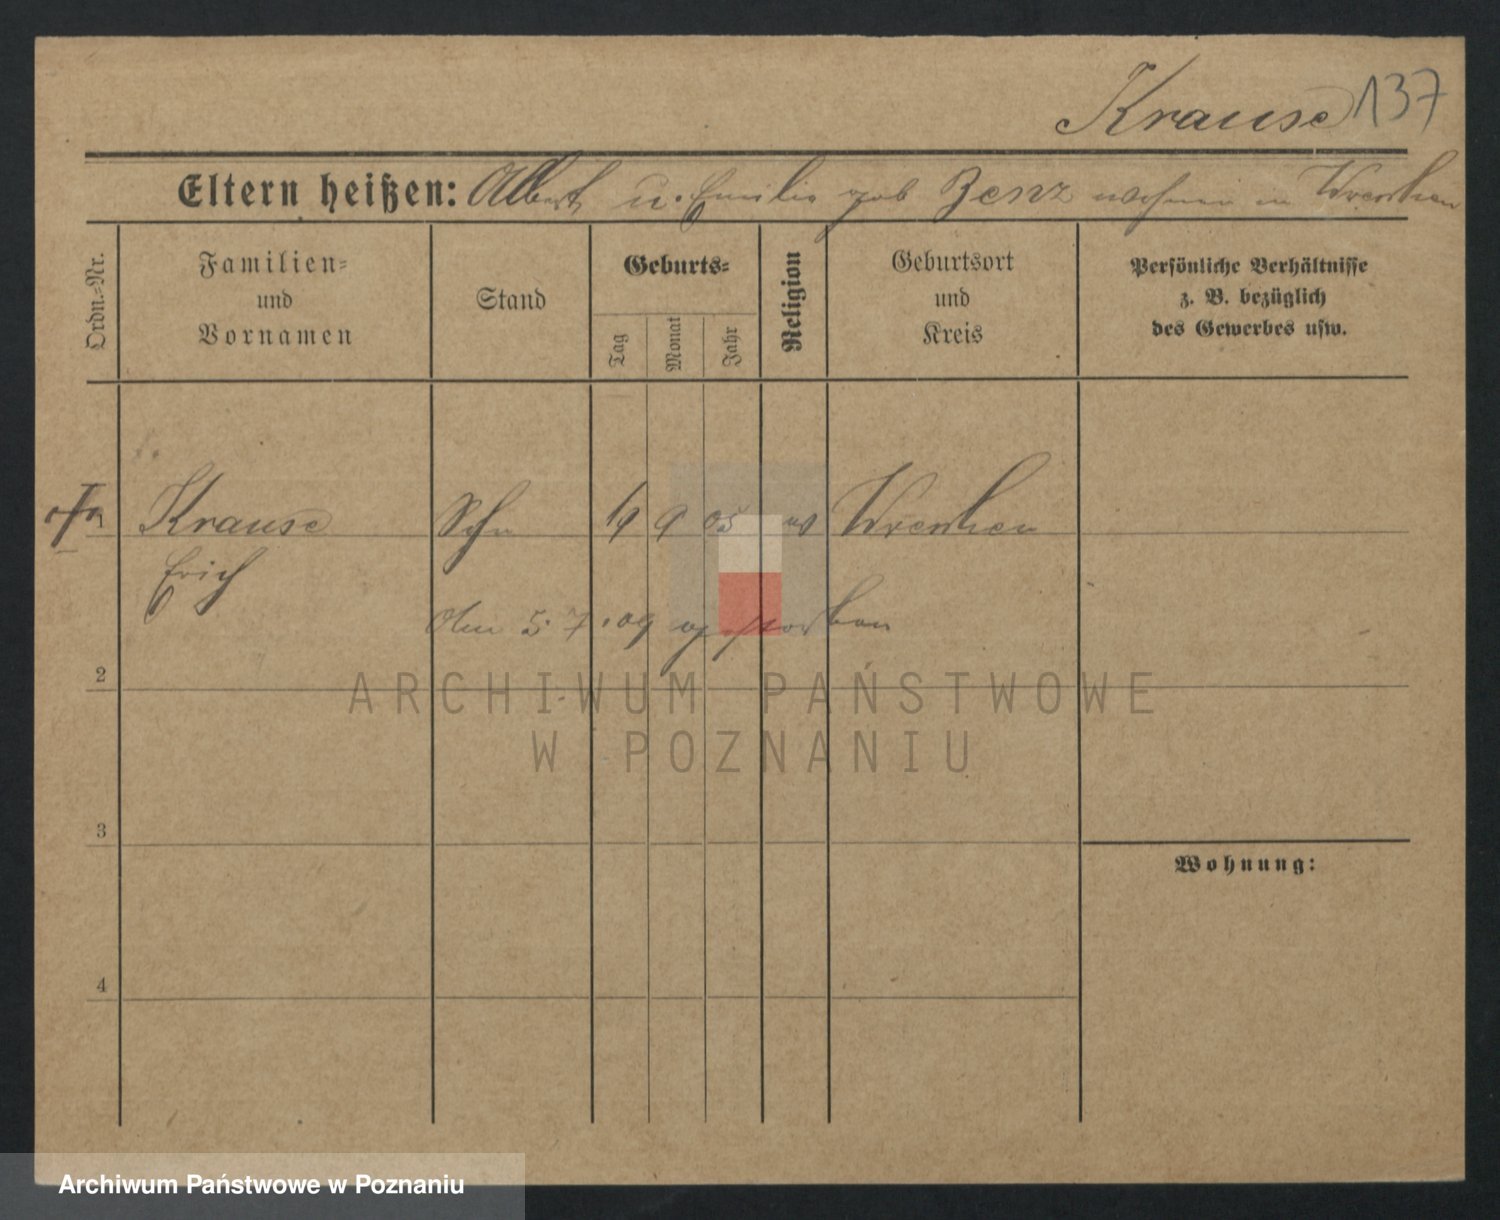 Krause 137
Eltern heißen: Albert u. Emilie geb Zenz wohnen in Wreschen
Ordn.-Nr.
Familien-
und
Vornamen
Stand
Geburts-
Tag
Monat
Jahr
Religion
Geburtsort
und
Kreis
Persönliche Verhältnisse
z. B. bezüglich
des Gewerbes usw.
Krause 9 05 Wreschen
Erich
Am 5 7. 09 gestorben
2
ARCHIWUM PAŃSTWOWE
W POZNANIU
3
Wohnung:
4
Archiwum Państwowe w Poznaniu